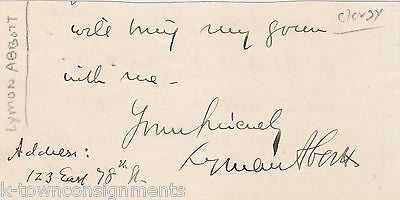 will bring my gown
clergy
LYMON ABBOTT
with me -
Yours sincerely
Lyman Abbott
Address:
123 East 78th St.
k-townconsignments